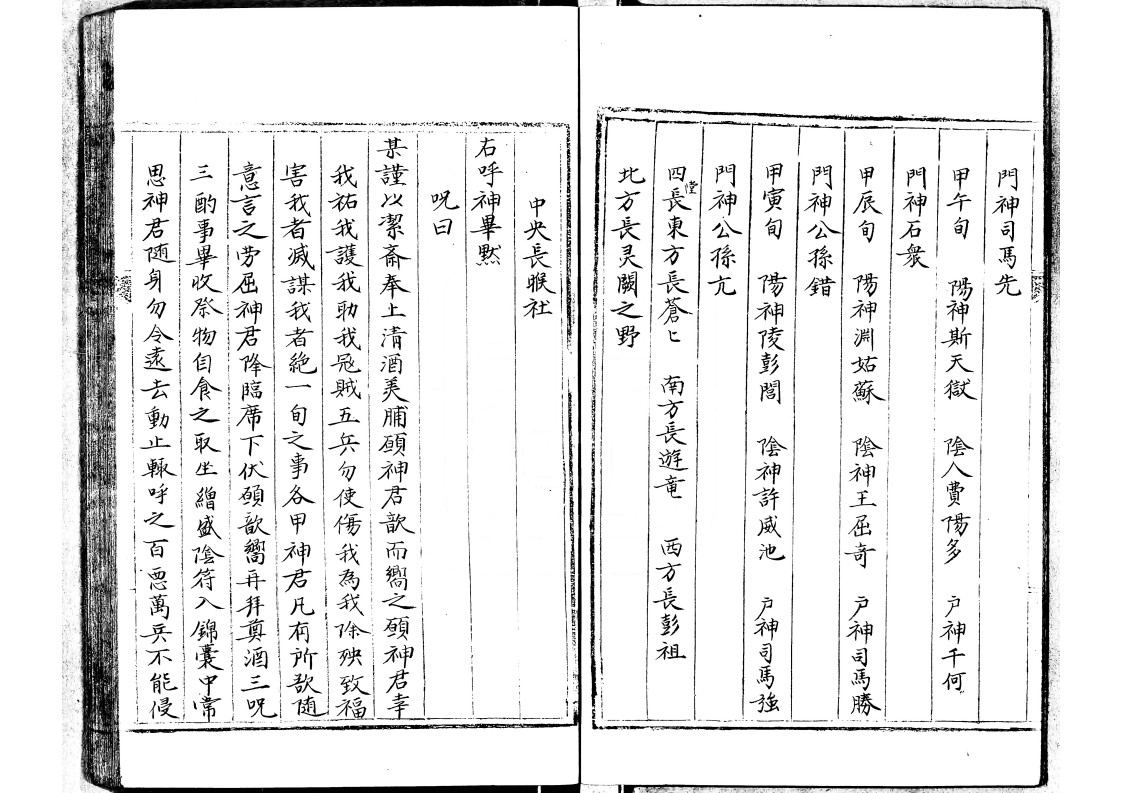 門神司馬先
甲午旬　陽神斯天獄　陰人費陽多　户神千何
門神石衆
甲辰旬　陽神淵姑蘇　陰神王屈奇　户神司馬勝
門神公孫錯
甲寅旬　陽神陵彭閭　陰神許威池　户神司馬強
門神公孫亢
四長東方長蒼〻　南方長遊竜　西方長彭祖
北方長灵闕之野
中央長㬋社
右呼神畢黙
呪曰
某謹以潔斎奉上清酒美脯願神君歆而嚮之願神君幸
我祐我護我助我冦賊五兵勿使傷我為我除殃致福
害我者滅謀我者絶一旬之事各甲神君凡有所欲随
意言之労屈神君降臨席下伏願歆嚮再拜奠酒三呪
三酌事畢收祭物自食之取坐繒盛陰符入錦囊中常
思神君随身勿令遠去動止輙呼之百悪萬兵不能侵